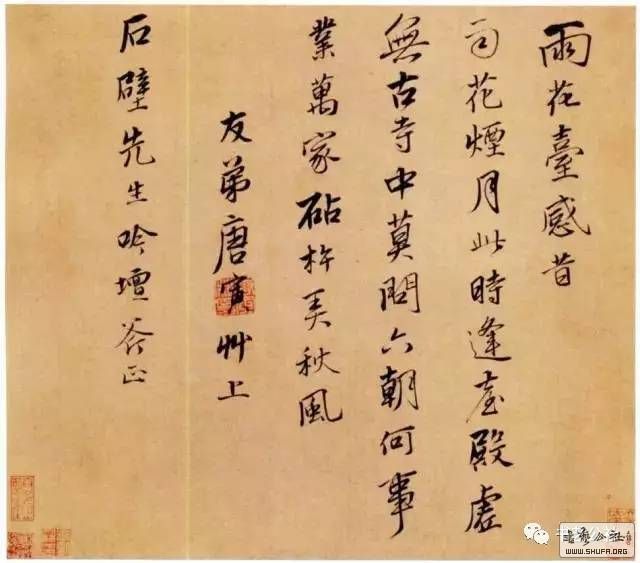 雨花臺感昔
司花煙月此時逢臺殿虛
無古寺中莫問六朝何事
業萬家砧杵秋風
友弟唐寅艸上
石壁先生吟壇斧正
書藝公社
WWW.SHUFA.ORG